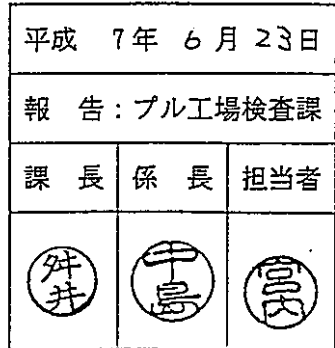 平成 7年 6月23日
報 告:プル工場検査課
課 長 係 長 担当者
舛井 中島 宮内